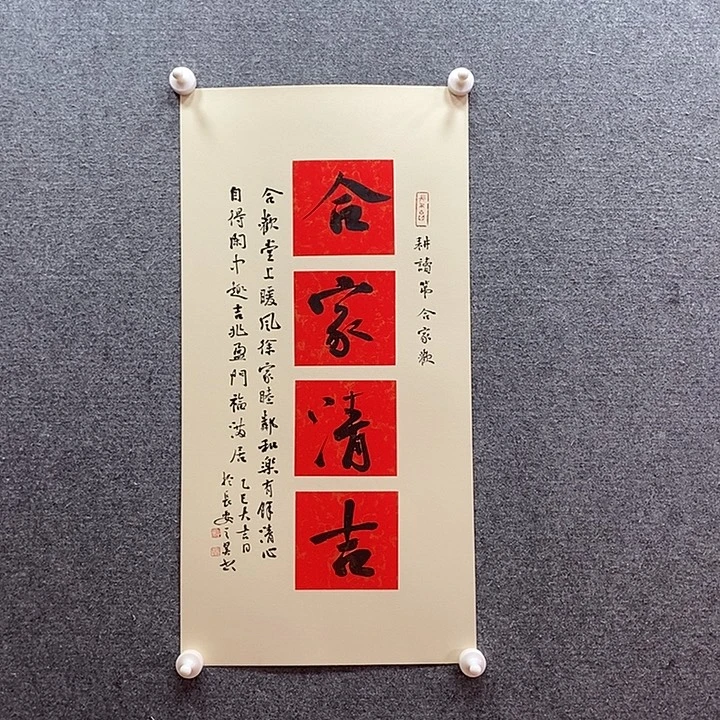 耕讀第 合家歡
合
家
清
吉
合歡堂上暖風徐家睦鄰和樂有餘清心
自得閑中趣吉兆盈門福滿居
乙巳大吉日
於長安